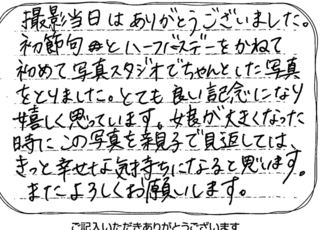 撮影当日はありがとうございました。
初節句とハーフバースデーをかねて
初めて写真スタジオでちゃんとした写真
をとりました。とても良い記念になり
嬉しく思っています。娘が大きくなった
時にこの写真を親子で見返しては、
きっと幸せな気持ちになると思います。
またよろしくお願いします。
ご記入いただきありがとうございます